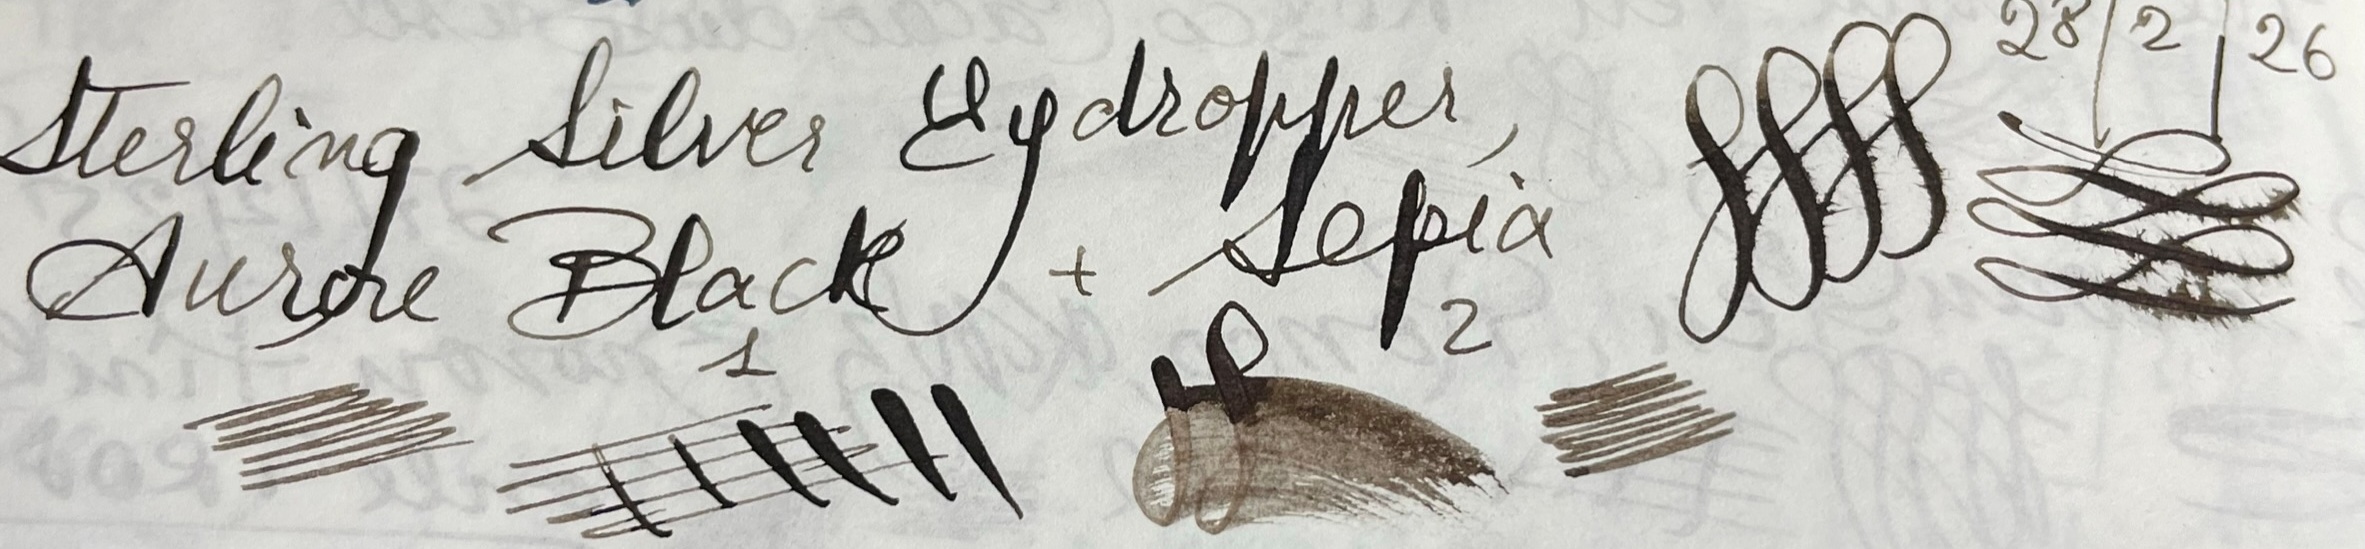 28/2/26
Sterling Silver Eydropper,
Aurore Black + Sepia
1 2